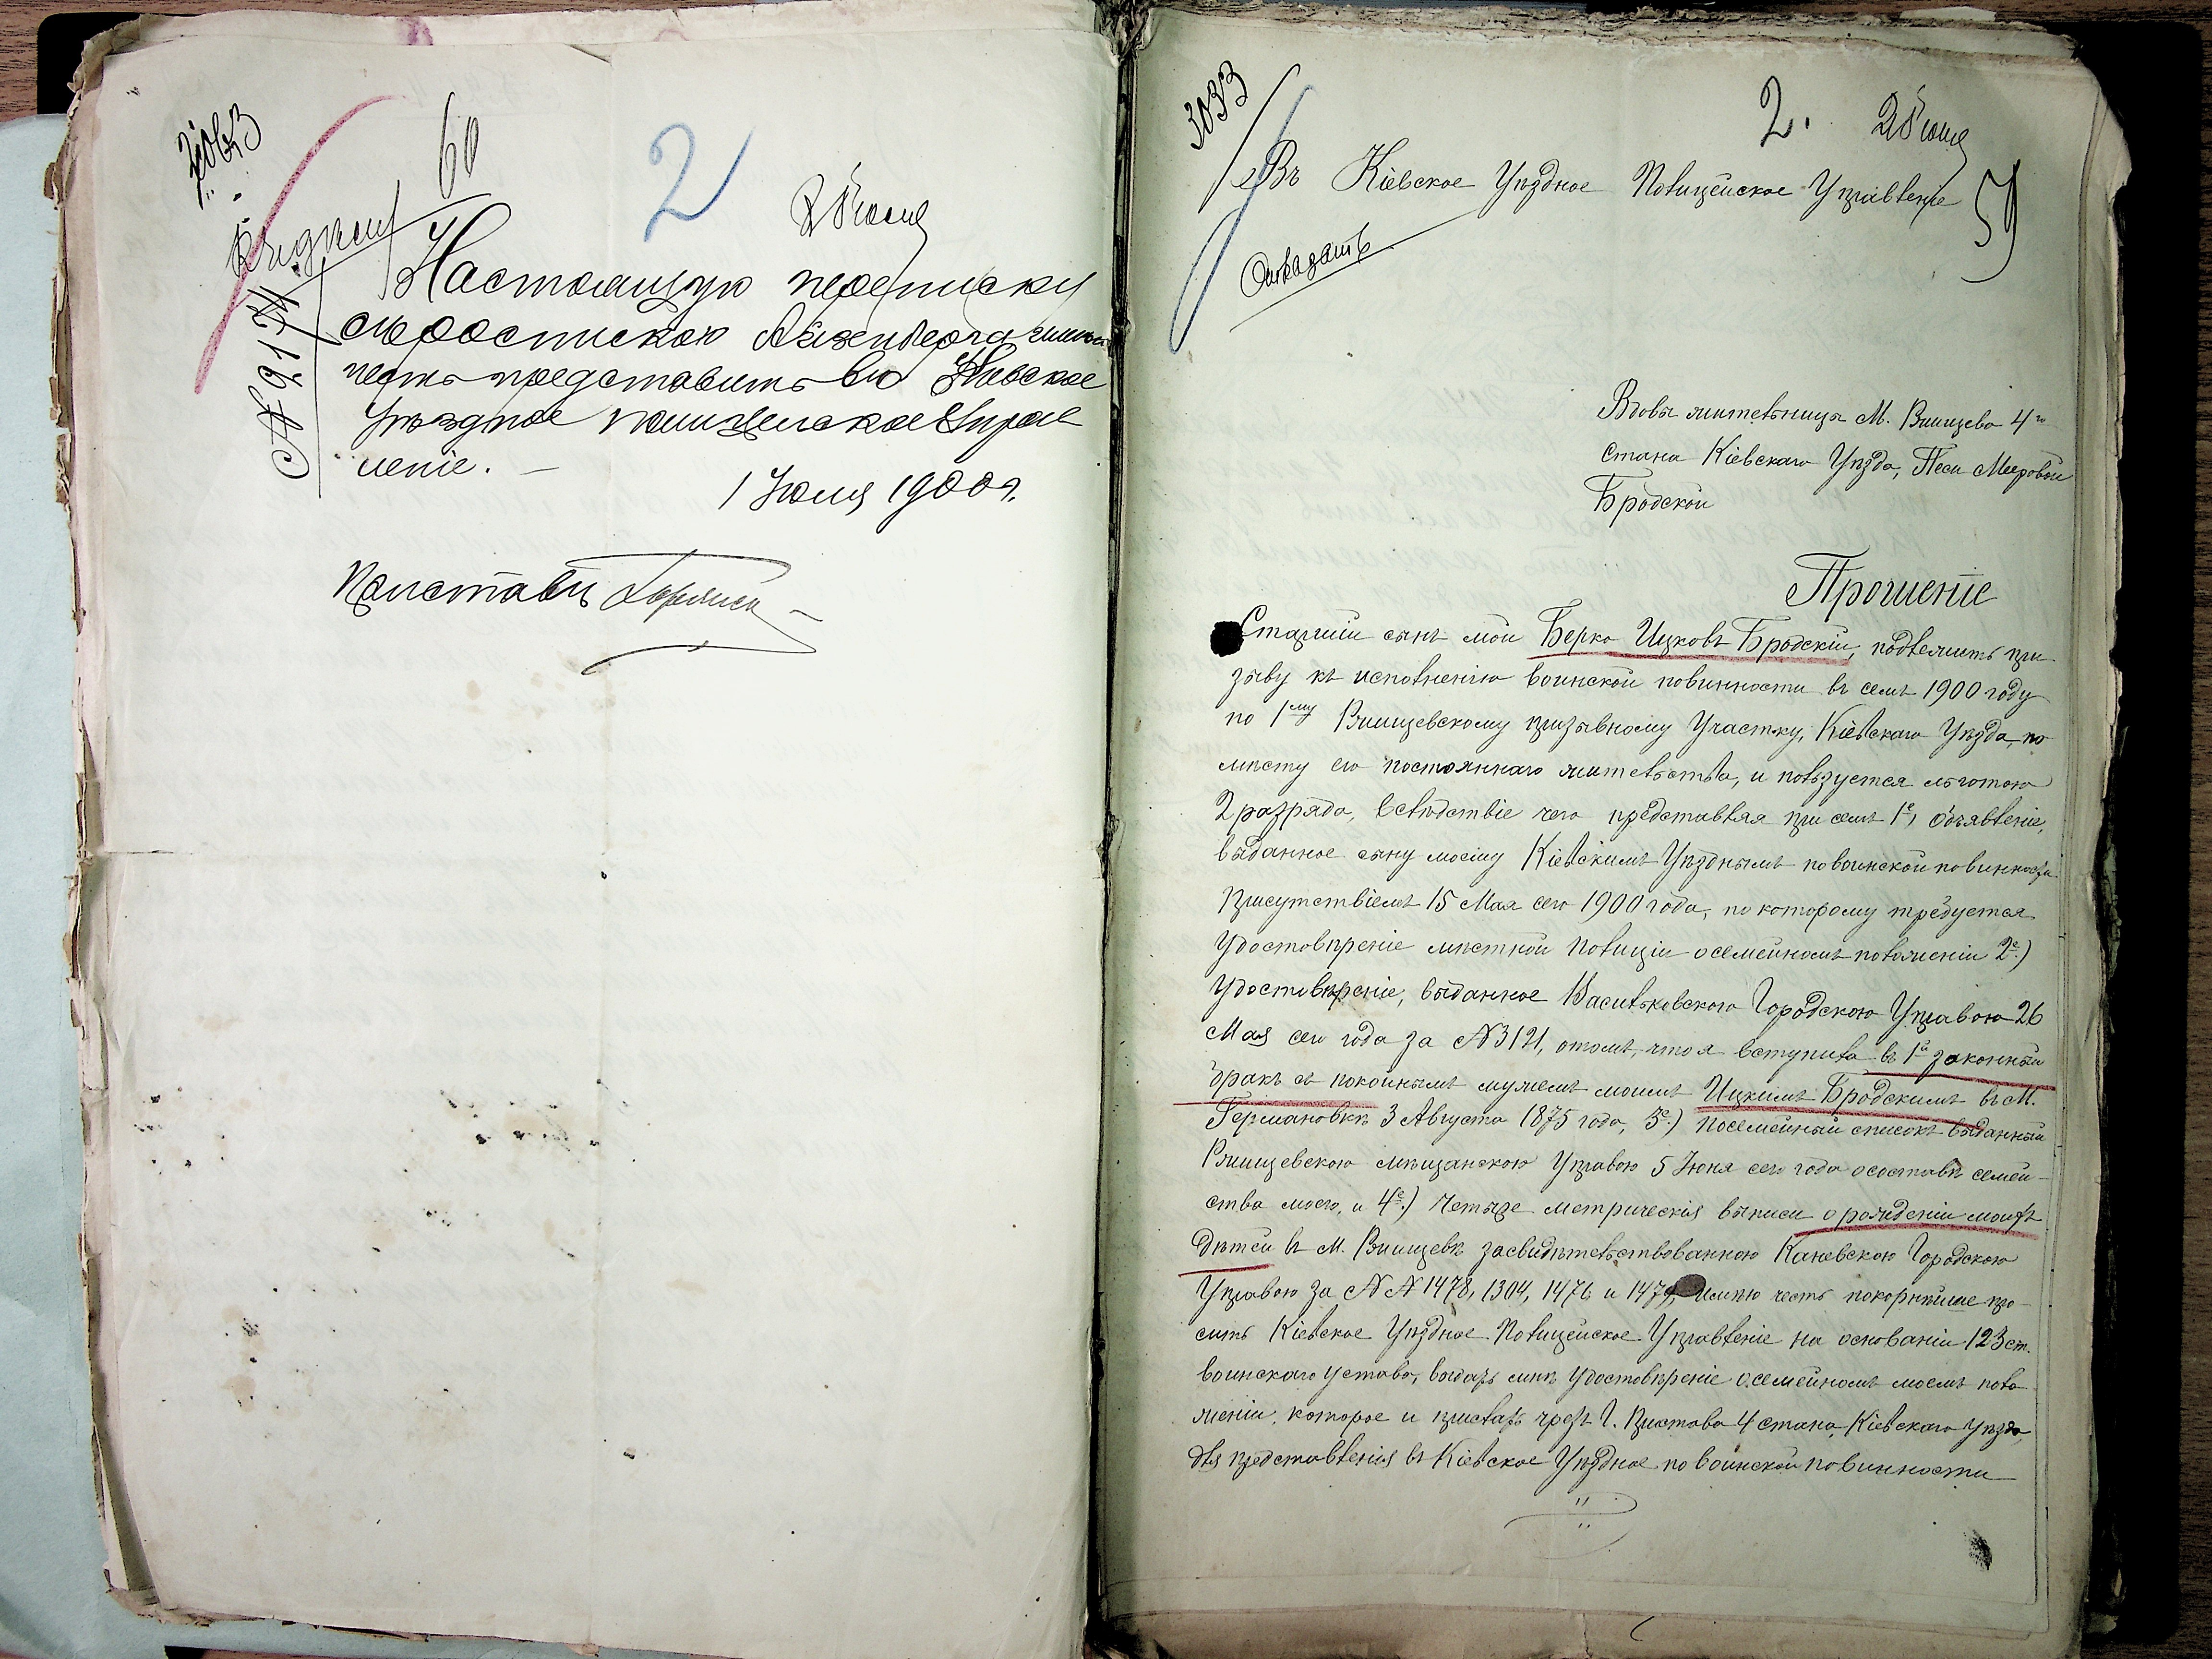 60
2
Настоящую переписку
съ роспискою Айзенберга имѣю
честь представить въ Кіевское
Уѣздное полицейское Управ
леніе. –
1 Юля 1900 г.
Приставъ
3033
2.
59
Въ Кіевское Уѣздное Полицейское Управленіе
Отказать
Вдовы жительницы М. Ржищева 4го
стана Кіевскаго Уѣзда, Песи Мееровой
Бродской
Прошеніе
Старшій сынъ мой Берко Ицковъ Бродскій, подлежитъ при-
зыву къ исполненію воинской повинности въ семъ 1900 году
по 1му Ржищевскому призывному Участку, Кіевскаго Уѣзда, по
мѣсту его постояннаго жительства, и пользуется льготою
2 разряда, вслѣдствіе чего представляя при семъ 1е, объявленіе,
выданное сыну моему Кіевскимъ Уѣзднымъ по воинской повинности
Присутствіемъ 15 Мая сего 1900 года, по которому требуется
Удостовѣреніе мѣстной Полиціи о семейномъ положеніи 2е.)
Удостовѣреніе, выданное Васильковскою Городскою Управою 26
Мая сего года за № 3121, о томъ, что я вступила въ 1й законный
бракъ съ покойнымъ мужемъ моимъ Ицкимъ Бродскимъ въ М.
Германовкѣ 3 Августа 1875 года, 3е.) Посемейный списокъ выданный
Ржищевскою мѣщанскою Управою 5 Іюня сего года о составѣ семей-
ства моего, и 4е.) Четыре метрическія выписи о рожденіи моихъ
дѣтей въ М. Ржищевѣ засвидѣтельствованною Каневскою Городскою
Управою за №№ 1478, 1304, 1476 и 1479, имѣю честь покорнѣйше про-
сить Кіевское Уѣздное Полицейское Управленіе на основаніи 123 ст.
воинскаго устава, выдать мнѣ Удостовѣреніе о семейномъ моемъ поло-
женіи, которое и прислать чрезъ Г. Пристава 4 стана, Кіевскаго Уѣзда,
для представленія въ Кіевское Уѣздное по воинской повинности